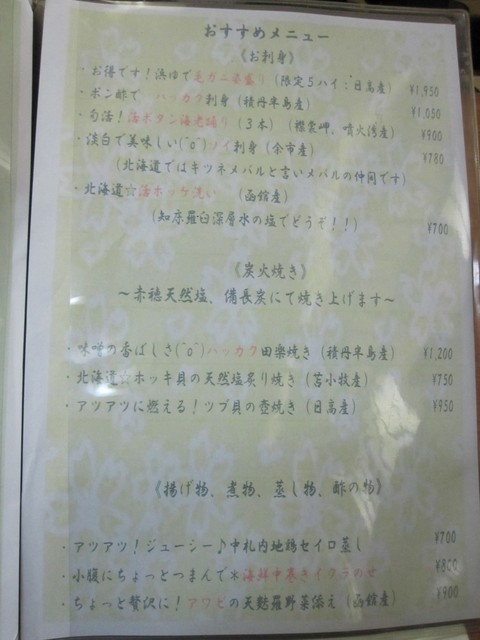 おすすめメニュー
《お刺身》
・お得です！浜ゆで毛ガニ姿盛り（限定５ハイ：日高産） ¥1,950
・ポン酢で ハッカク刺身（積丹半島産） ¥1,050
・旬活！活ボタン海老踊り（３本）（襟裳岬、噴火湾産） ¥900
・淡白で美味しい(^o^)ソイ刺身（余市産） ¥780
（北海道ではキツネメバルと言いメバルの仲間です）
・北海道☆活ホッケ洗い （函館産）
（知床羅臼深層水の塩でどうぞ！！） ¥700
《炭火焼き》
～赤穂天然塩、備長炭にて焼き上げます～
・味噌の香ばしさ(^o^)ハッカク田楽焼き（積丹半島産） ¥1,200
・北海道☆ホッキ貝の天然塩炙り焼き（苫小牧産） ¥750
・アツアツに燃える！ツブ貝の壺焼き（日高産） ¥950
《揚げ物、煮物、蒸し物、酢の物》
・アツアツ！ジューシー♪中札内地鶏セイロ蒸し ¥700
・小腹にちょっとつまんで＊海鮮中巻きイクラのせ ¥800
・ちょっと贅沢に！アワビの天麩羅野菜添え（函館産） ¥900